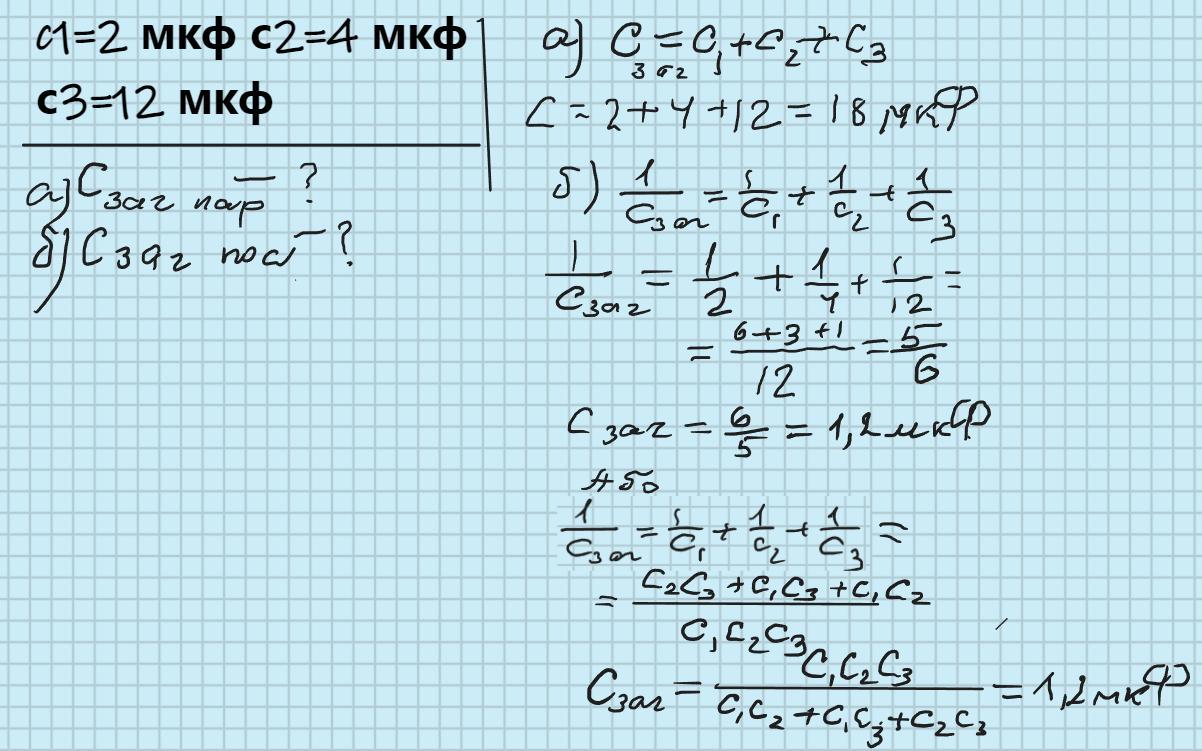 c1=2 мкф c2=4 мкф
c3=12 мкф
а) Cзаг пар – ?
б) Cзаг посл – ?
а) Cзаг = C₁ + C₂ + C₃
C = 2 + 4 + 12 = 18 мкФ
б) 1/Cзаг = 1/C₁ + 1/C₂ + 1/C₃
1/Cзаг = 1/2 + 1/4 + 1/12 =
= (6+3+1)/12 = 5/6
Cзаг = 6/5 = 1,2 мкФ
Або
1/Cзаг = 1/C₁ + 1/C₂ + 1/C₃ =
= (C₂C₃ + C₁C₃ + C₁C₂)/(C₁C₂C₃)
Cзаг = (C₁C₂C₃)/(C₁C₂ + C₁C₃ + C₂C₃) = 1,2 мкФ